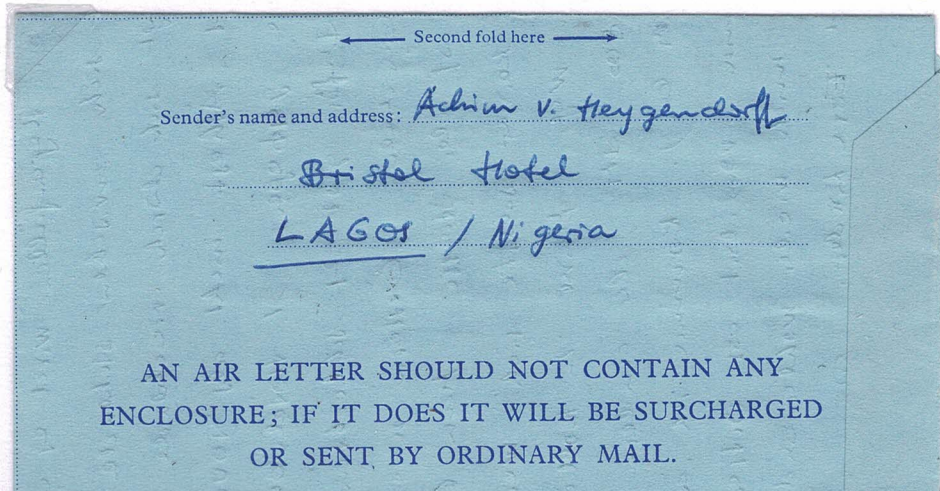 Second fold here
Sender's name and address: Achim v. Heygendorff
Bristol Hotel
LAGOS / Nigeria
AN AIR LETTER SHOULD NOT CONTAIN ANY
ENCLOSURE; IF IT DOES IT WILL BE SURCHARGED
OR SENT BY ORDINARY MAIL.